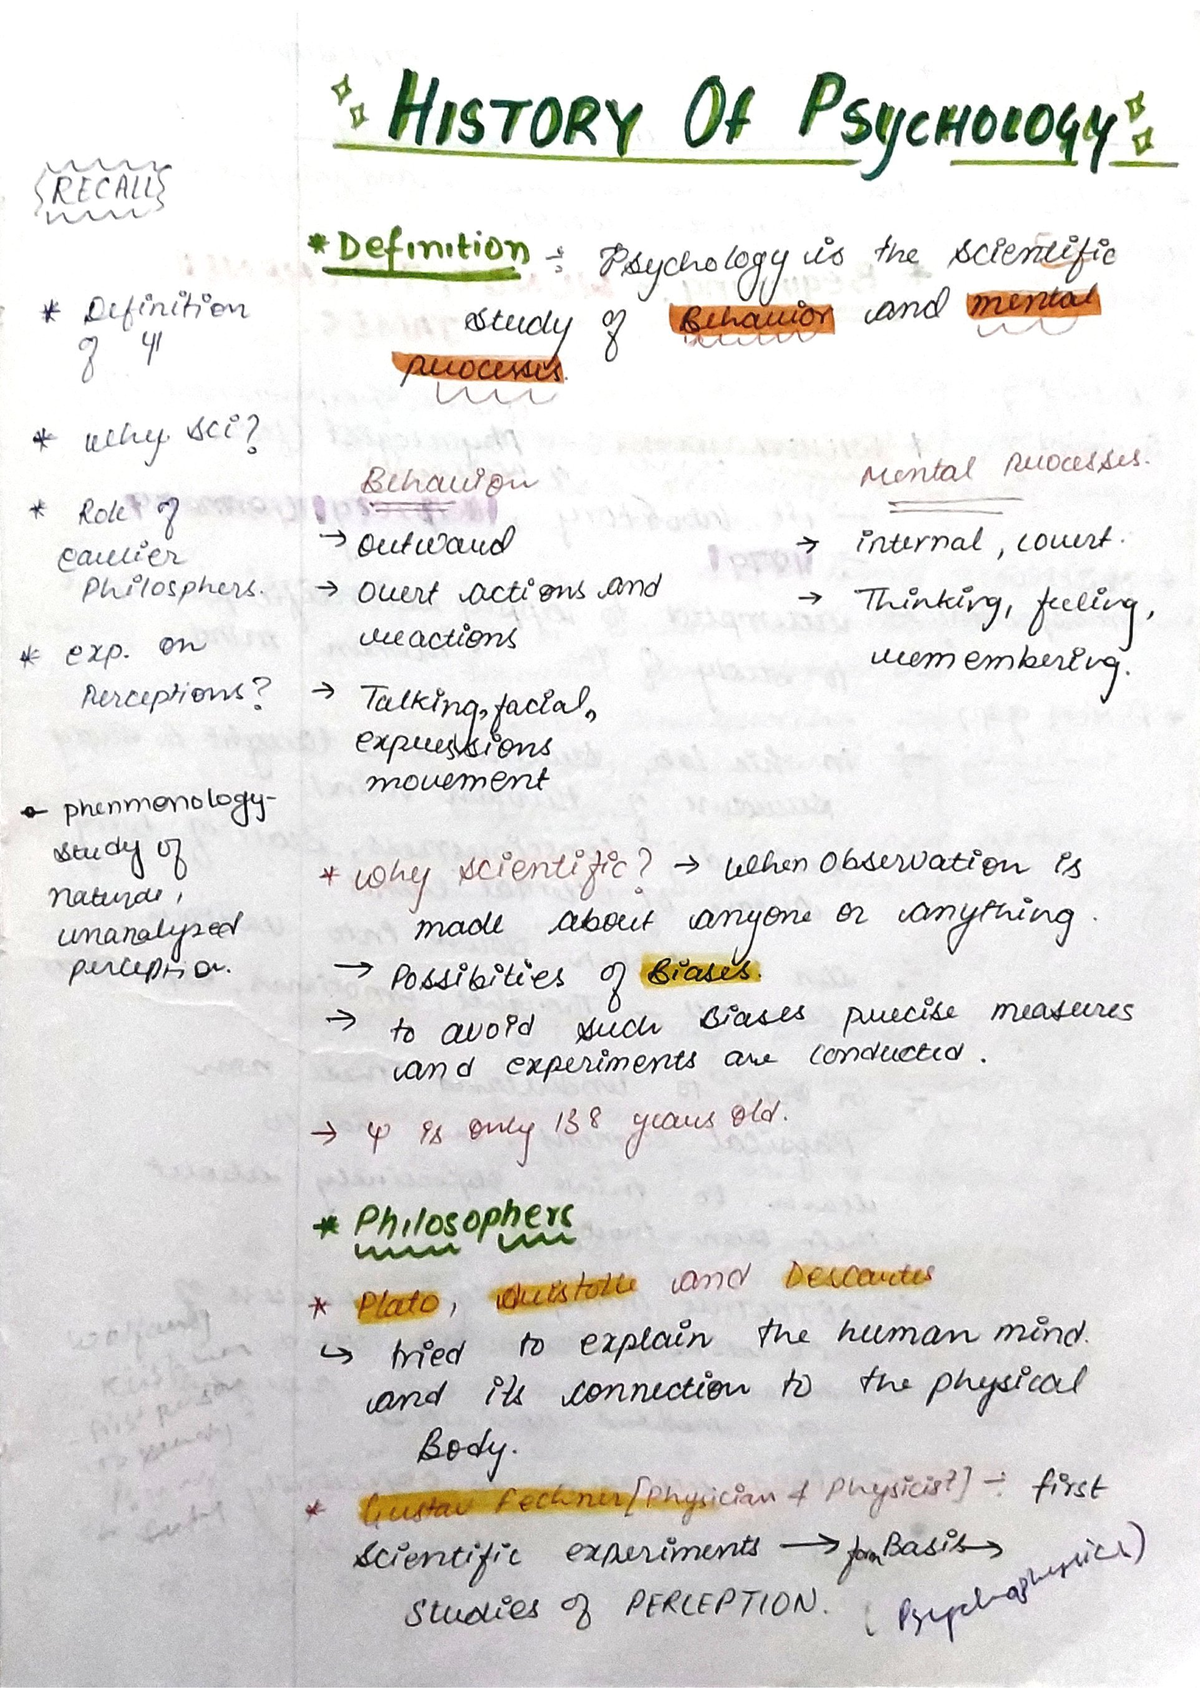 HISTORY Of PSYCHOLOGY
RECALL
* Definition
of ψ
* Why sci?
* Role of
earlier
Philosphers.
* exp. on
Perceptions?
phenmonology-
study of
natural,
unanalyzed
perception.
* Definition :- Psychology is the scientific
study of Behavior and mental
processes.
Behavior
→ outward
→ overt actions and
reactions
→ Talking, facial,
expressions
movement
Mental Processes.
→ internal, covert.
→ Thinking, feeling,
remembering.
* Why scientific? → when observation is
made about anyone or anything.
→ Possibities of Biases.
→ to avoid such Biases precise measures
and experiments are conducted.
→ ψ is only 138 years old.
* Philosophers
* Plato, Aristotle and Descartes
↪ tried to explain the human mind.
and its connection to the physical
Body.
* Gustav Fechner [Physician & Physicist] :- first
scientific experiments → form Basis →
Studies of PERCEPTION. (Psychophysics)